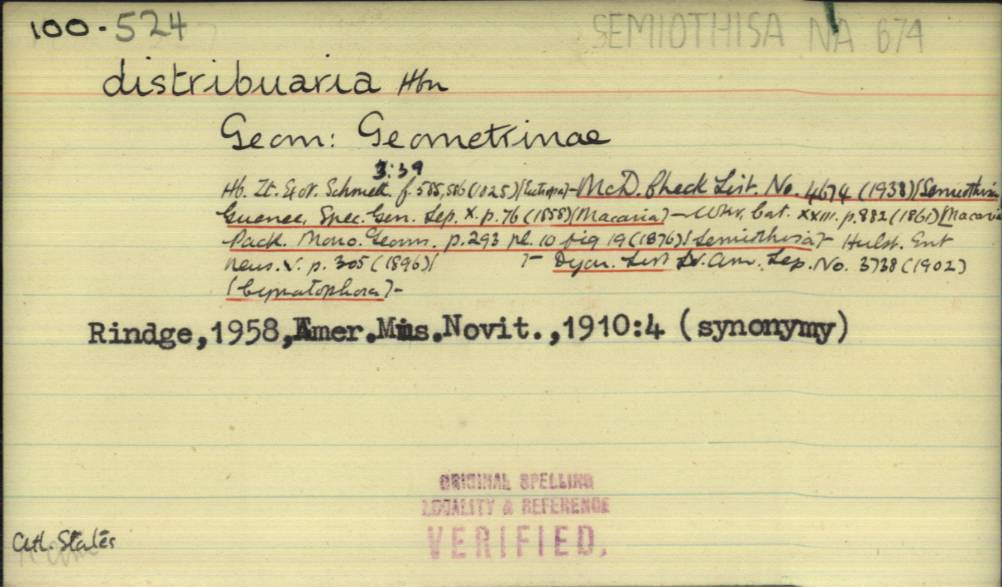 100-524 SEMIOTHISA NA 674
distribuaria Hbn
Geom: Geometrinae
3:39
Hb. Zt. Exot. Schmett f. 585,586 (1825) [ ]- McD. Check List. No. 4674 (1938) [Semiothisa
Guenee, Spec. Gen. Lep. X. p. 76 (1858) [Macaria] - Wkr. Cat. XXIII. p. 882 (1861) [Macaria
Pack. Mono. Geom. p. 293 pl. 10 fig 19 (1876) [Semiothisa]- Hulst. Ent
News. V. p. 305 (1896) [ ]- Dyar. List N. Am. Lep. No. 3738 (1902)
[Cymatophora]-
Rindge,1958,Amer.Mus.Novit.,1910:4 (synonymy)
ORIGINAL SPELLING
LOCALITY & REFERENCE
VERIFIED.
Atl. States